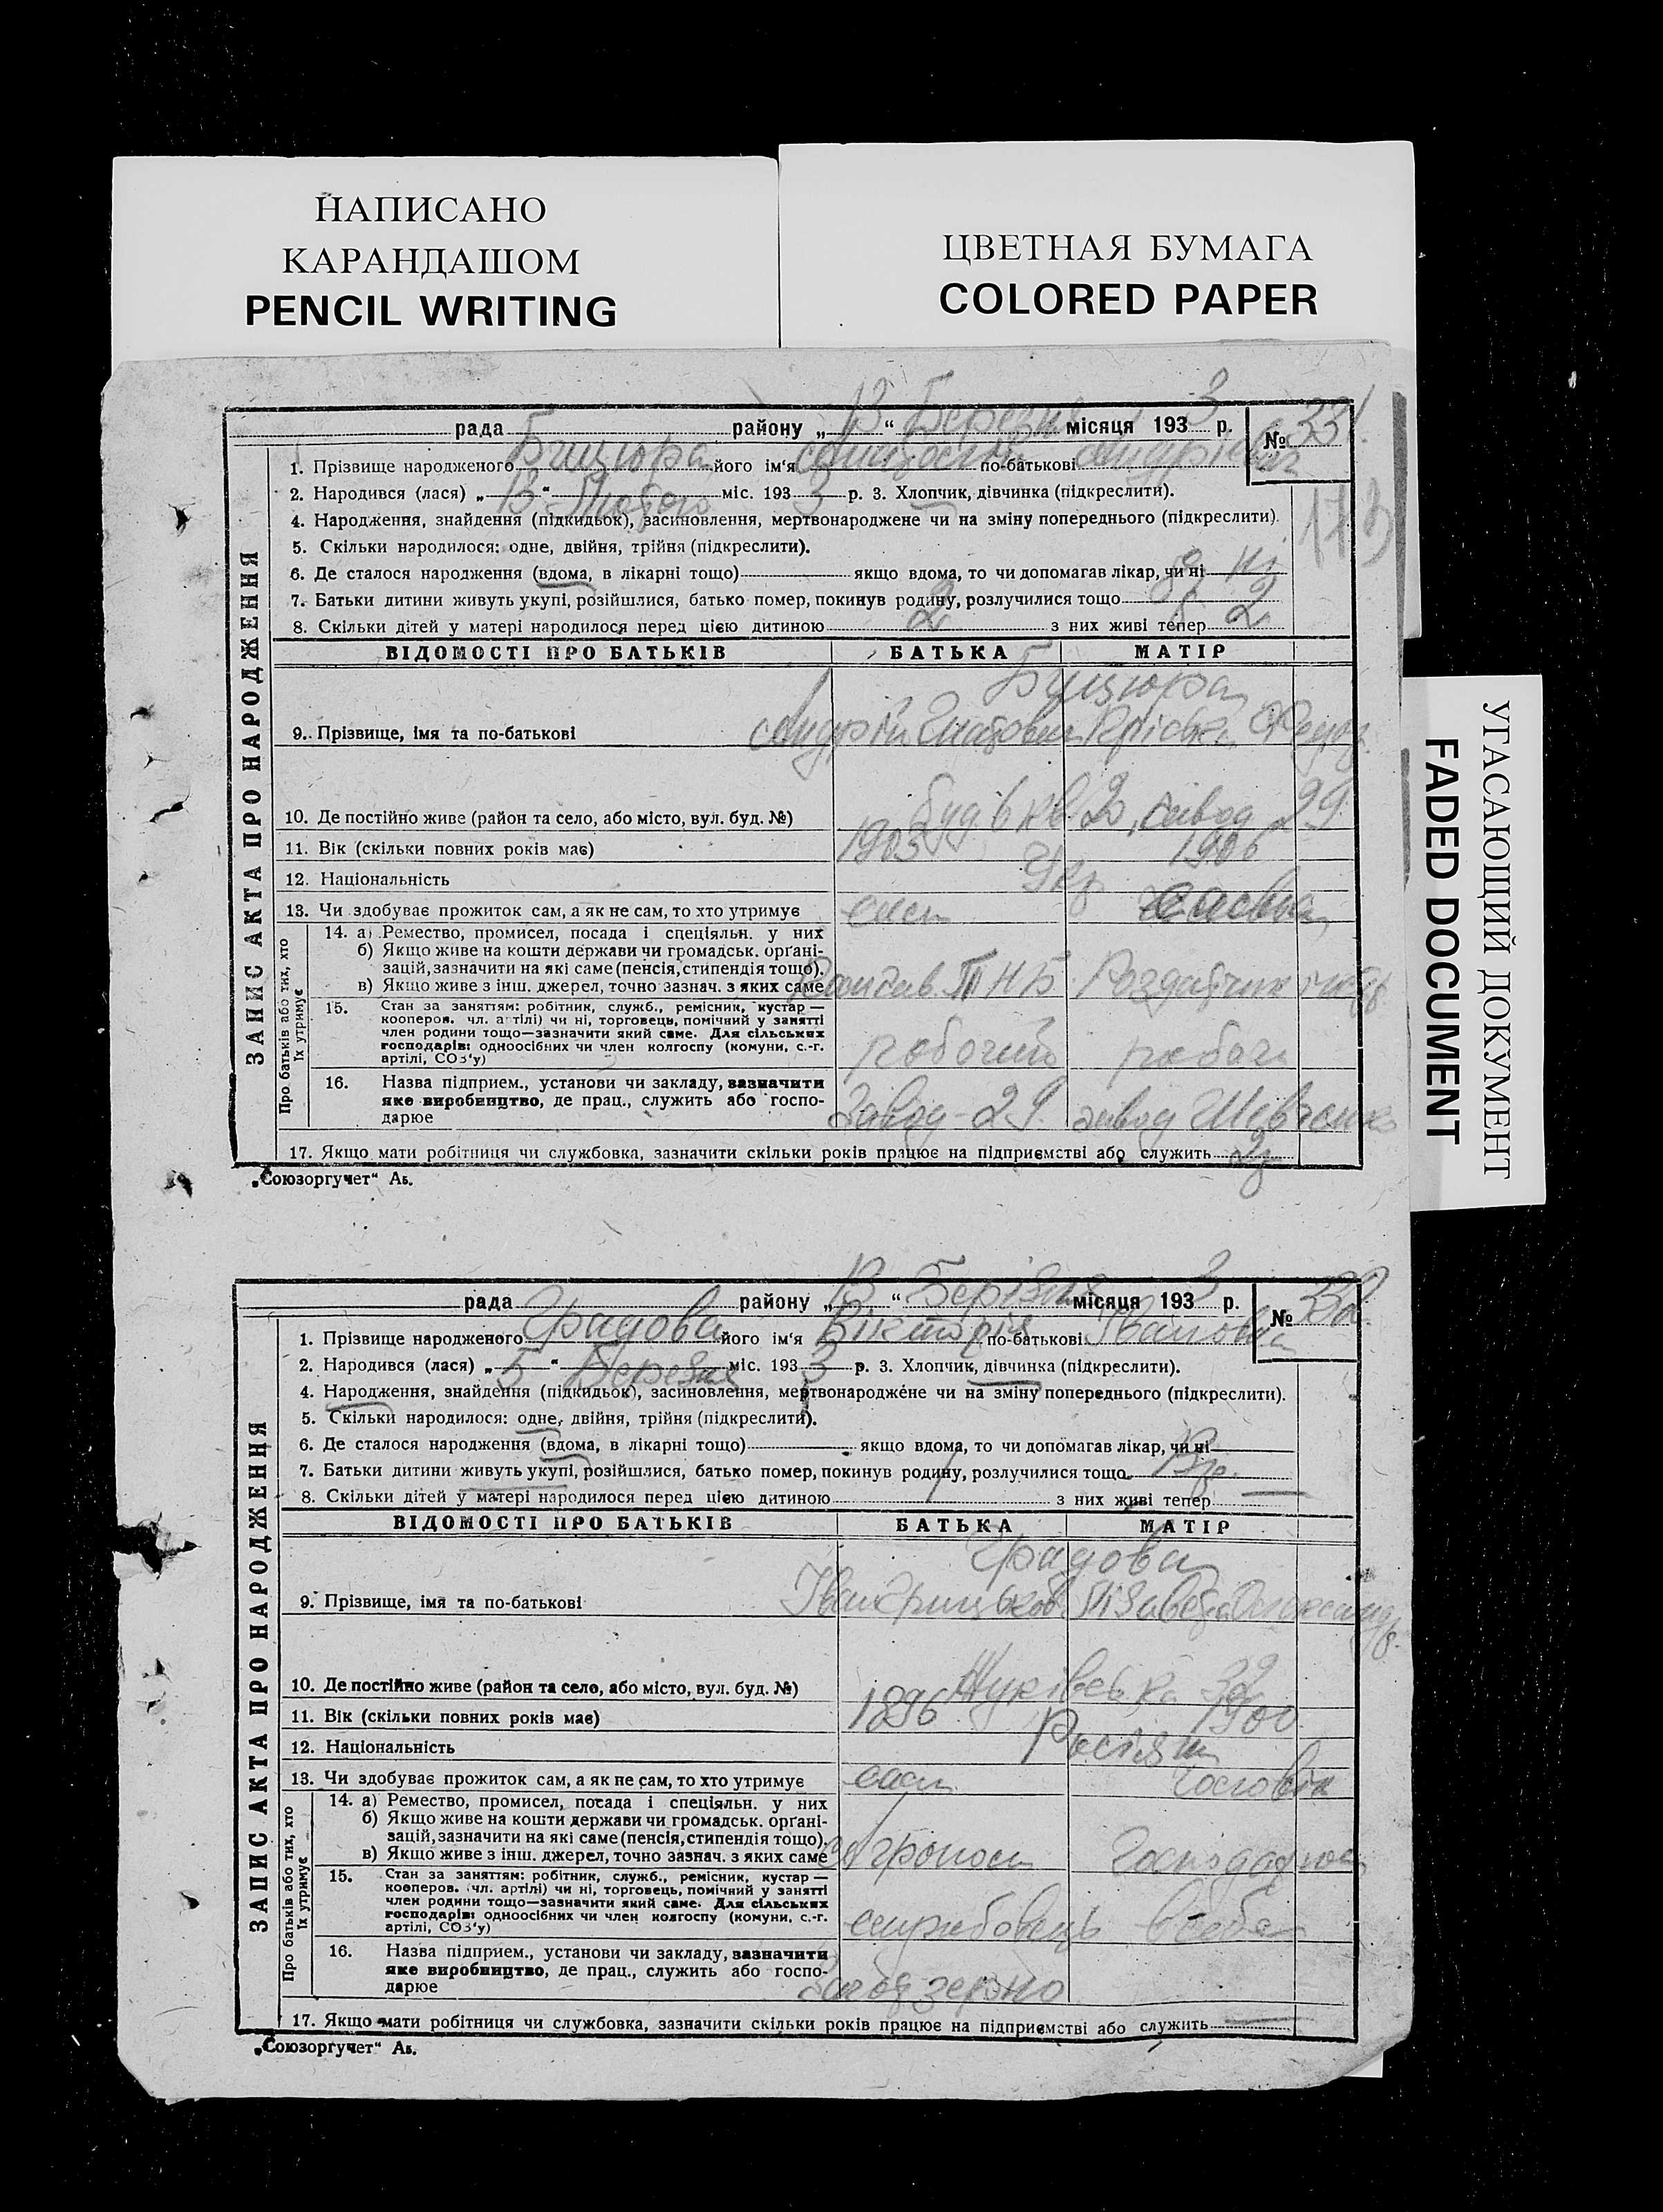 НАПИСАНО
КАРАНДАШОМ
PENCIL WRITING
ЦВЕТНАЯ БУМАГА
COLORED PAPER
УГАСАЮЩИЙ ДОКУМЕНТ
FADED DOCUMENT
ЗАПИС АКТА ПРО НАРОДЖЕННЯ
рада району „13“ Березня місяця 1933 р. № 331.
1. Прізвище народженого Бицюра його ім'я по-батькові
2. Народився (лася) „13“ Лютого міс. 1933 р. 3. Хлопчик, дівчинка (підкреслити).
4. Народження, знайдення (підкидьок), засиновлення, мертвонароджене чи на зміну попереднього (підкреслити).
5. Скільки народилося: одне, двійня, трійня (підкреслити).
6. Де сталося народження (вдома, в лікарні тощо) якщо вдома, то чи допомагав лікар, чи ні Ні
7. Батьки дитини живуть укупі, розійшлися, батько помер, покинув родину, розлучилися тощо
8. Скільки дітей у матері народилося перед цією дитиною 2 з них живі тепер 2
ВІДОМОСТІ ПРО БАТЬКІВ БАТЬКА МАТІР
Бицюра
9. Прізвище, імя та по-батькові Андрій
10. Де постійно живе (район та село, або місто, вул. буд. №) буд 6 кв. 2, завод 29.
11. Вік (скільки повних років має) 1903 1906
12. Національність Укр
13. Чи здобуває прожиток сам, а як не сам, то хто утримує сам сама
Про батьків або тих, хто їх утримує
14. а) Ремество, промисел, посада і спеціяльн. у них
б) Якщо живе на кошти держави чи громадськ. орґані-
зацій, зазначити на які саме (пенсія, стипендія тощо).
в) Якщо живе з інш. джерел, точно зазнач. з яких саме ТНБ
15. Стан за заняттям: робітник, служб., ремісник, кустар—
кооперов. чл. артілі) чи ні, торговець, помічний у занятті
член родини тощо—зазначити який саме. Для сільських
господарів: одноосібних чи член колгоспу (комуни, с.-г.
артілі, СОЗ'у) робочий робоча
16. Назва підприєм., установи чи закладу, зазначити
яке виробництво, де прац., служить або госпо-
дарює Завод-29. завод Шевченко
17. Якщо мати робітниця чи службовка, зазначити скільки років працює на підприємстві або служить 2
„Союзоргучет“ Аб.
ЗАПИС АКТА ПРО НАРОДЖЕННЯ
рада району „13“ Берізня місяця 1933 р. № 332
1. Прізвище народженого Градова його ім'я Вікторія по-батькові Івановна
2. Народився (лася) „5“ Березня міс. 1933 р. 3. Хлопчик, дівчинка (підкреслити).
4. Народження, знайдення (підкидьок), засиновлення, мертвонароджене чи на зміну попереднього (підкреслити).
5. Скільки народилося: одне, двійня, трійня (підкреслити).
6. Де сталося народження (вдома, в лікарні тощо) якщо вдома, то чи допомагав лікар, чи ні
7. Батьки дитини живуть укупі, розійшлися, батько помер, покинув родину, розлучилися тощо
8. Скільки дітей у матері народилося перед цією дитиною з них живі тепер
ВІДОМОСТІ ПРО БАТЬКІВ БАТЬКА МАТІР
Градова
9. Прізвище, імя та по-батькові Іван Грицьков.
10. Де постійно живе (район та село, або місто, вул. буд. №) Жуківська 32
11. Вік (скільки повних років має) 1896 1900
12. Національність Росіяни
13. Чи здобуває прожиток сам, а як не сам, то хто утримує сам Чоловік
Про батьків або тих, хто їх утримує
14. а) Ремество, промисел, посада і спеціяльн. у них
б) Якщо живе на кошти держави чи громадськ. орґані-
зацій, зазначити на які саме (пенсія, стипендія тощо).
в) Якщо живе з інш. джерел, точно зазнач. з яких саме Агроном
15. Стан за заняттям: робітник, служб., ремісник, кустар—
кооперов. чл. артілі) чи ні, торговець, помічний у занятті
член родини тощо—зазначити який саме. Для сільських
господарів: одноосібних чи член колгоспу (комуни, с.-г.
артілі, СОЗ'у) службовець в себе
16. Назва підприєм., установи чи закладу, зазначити
яке виробництво, де прац., служить або госпо-
дарює
17. Якщо мати робітниця чи службовка, зазначити скільки років працює на підприємстві або служить
„Союзоргучет“ Аб.